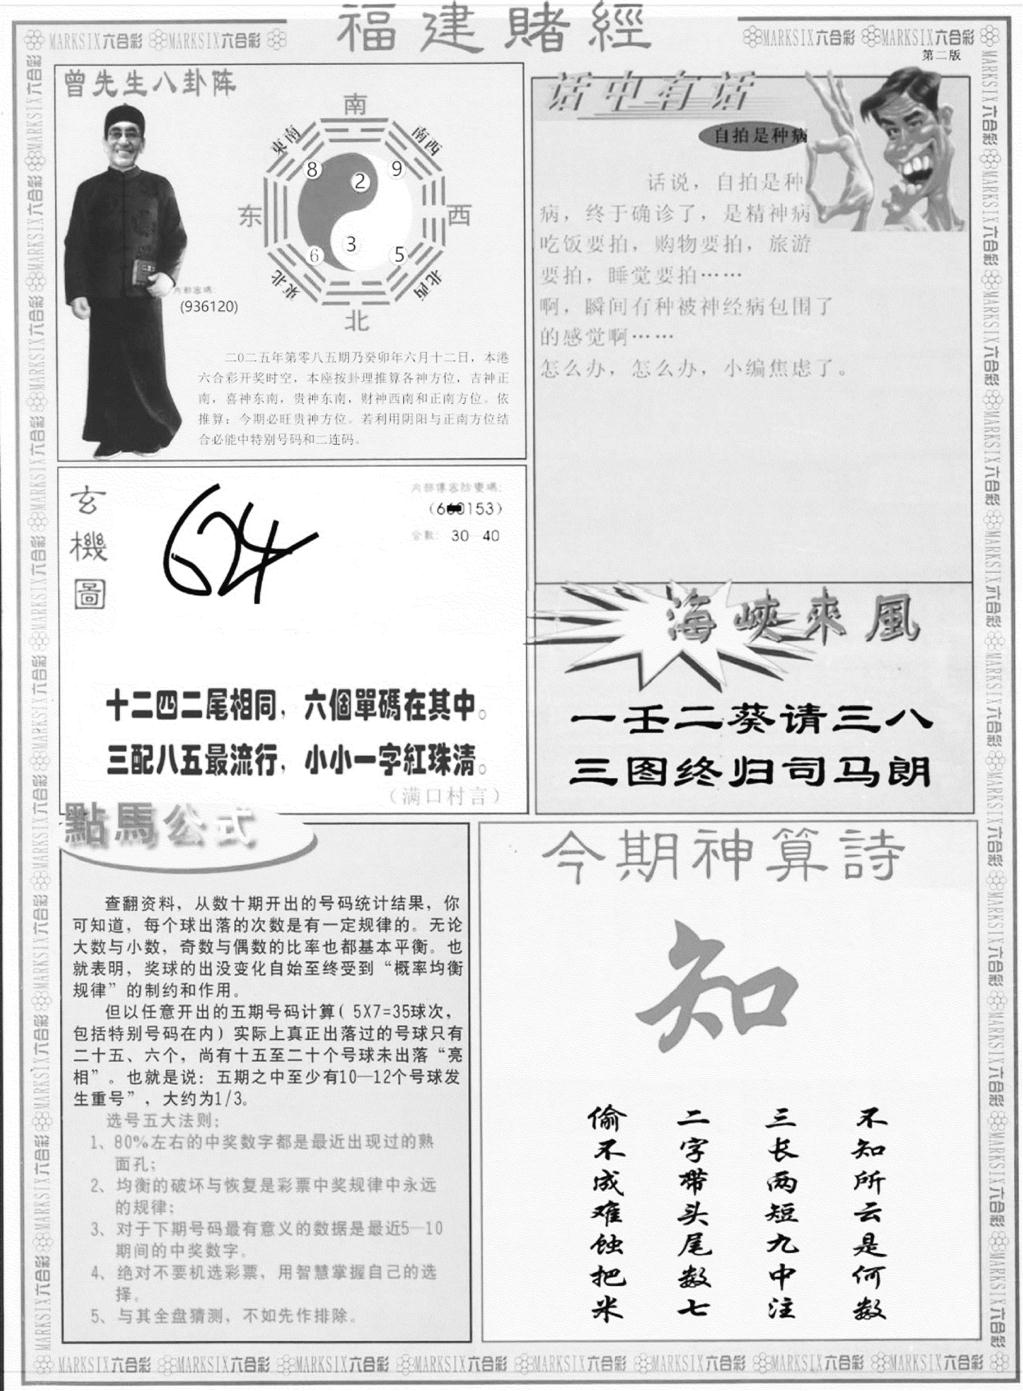 福建賭經
MARKSIX六合彩 MARKSIX六合彩
MARKSIX六合彩 MARKSIX六合彩
第二版
曾先生八卦阵
南
東南
南西
8
9
2
东
西
3
6
5
東北
北西
北
内部密碼:
(936120)
二0二五年第零八五期乃癸卯年六月十二日，本港
六合彩开奖时空，本座按卦理推算各神方位，吉神正
南，喜神东南，贵神东南，财神西南和正南方位。依
推算：今期必旺贵神方位。若利用阴阳与正南方位结
合必能中特别号码和二连码。
话中有话
自拍是种病
话说，自拍是种
病，终于确诊了，是精神病
吃饭要拍，购物要拍，旅游
要拍，睡觉要拍……
啊，瞬间有种被神经病包围了
的感觉啊……
怎么办，怎么办，小编焦虑了。
玄機圖
624
内部傳密防變碼:
30—40
十二四二尾相同，六個單碼在其中。
三配八五最流行，小小一字紅珠清。
（满口村言）
海峽來風
一壬二葵请三八
三图终归司马朗
點馬公式
查翻资料，从数十期开出的号码统计结果，你
可知道，每个球出落的次数是有一定规律的。无论
大数与小数，奇数与偶数的比率也都基本平衡。也
就表明，奖球的出没变化自始至终受到“概率均衡
规律”的制约和作用。
但以任意开出的五期号码计算( 5X7=35球次，
包括特别号码在内）实际上真正出落过的号球只有
二十五、六个，尚有十五至二十个号球未出落“亮
相”。也就是说：五期之中至少有10—12个号球发
生重号”，大约为1/3。
选号五大法则：
1、80%左右的中奖数字都是最近出现过的熟
面孔；
2、均衡的破坏与恢复是彩票中奖规律中永远
的规律；
3、对于下期号码最有意义的数据是最近5—10
期间的中奖数字。
4、绝对不要机选彩票，用智慧掌握自己的选
择。
5、与其全盘猜测，不如先作排除。
今期神算詩
知
不知所云是何数
三长两短九中注
二字带头尾数七
偷不成难蚀把米
MARKSIX六合彩 MARKSIX六合彩 MARKSIX六合彩 MARKSIX六合彩 MARKSIX六合彩 MARKSIX六合彩 MARKSIX六合彩 MARKSIX六合彩